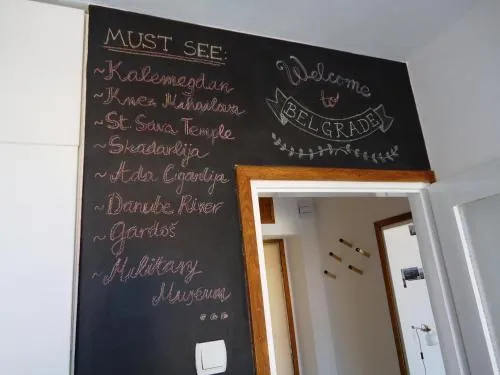 MUST SEE:
~Kalemegdan
~Knez Mihailova
~St. Sava Temple
~Skadarlija
~Ada Ciganlija
~Danube River
~Gardoš
~Military
Museum
...
Welcome
to
BELGRADE